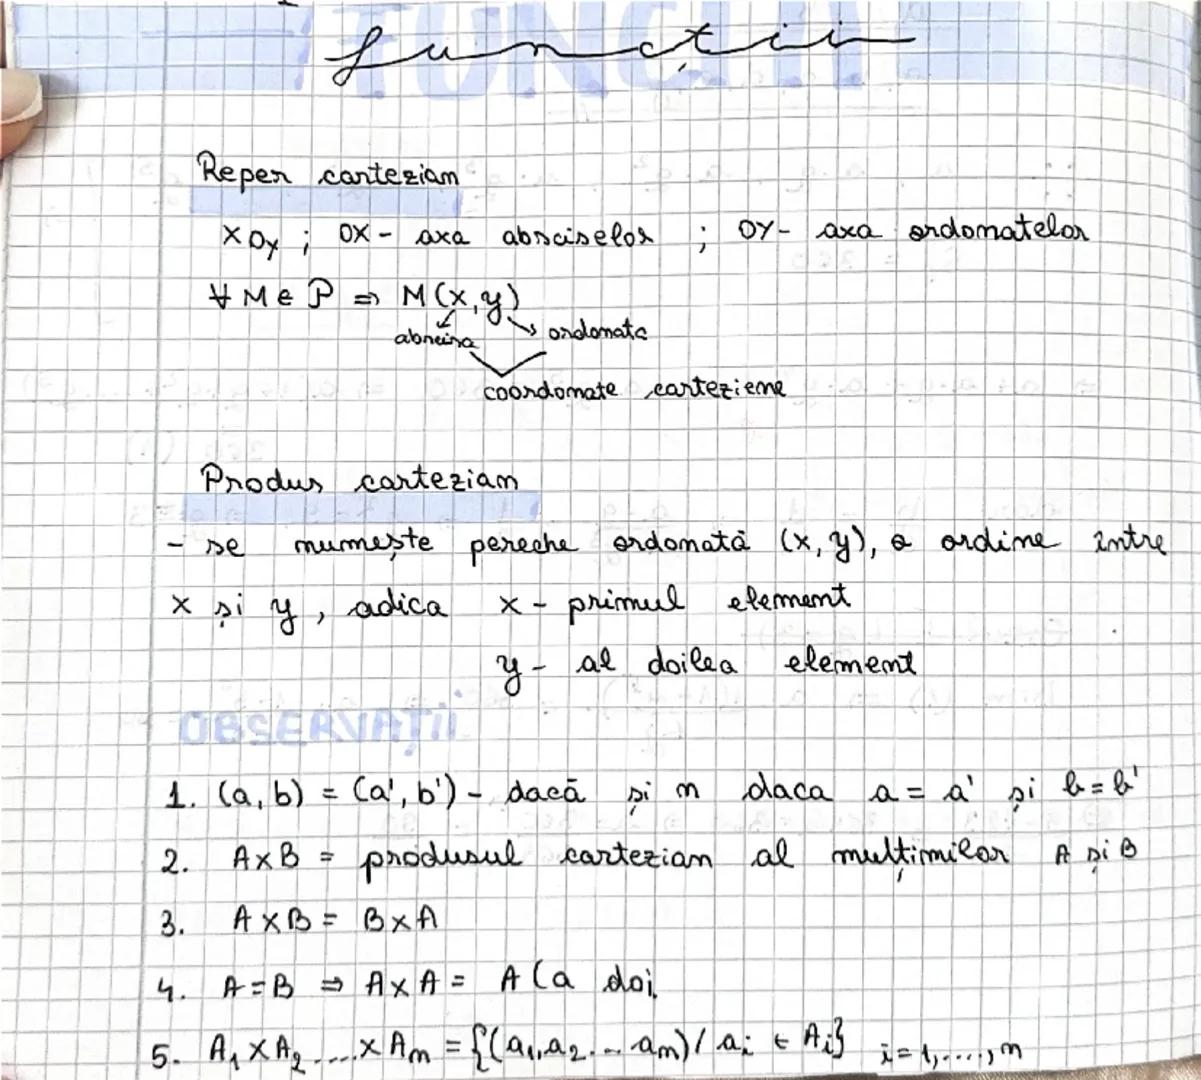 FUNCȚII
funcții
Reper cartezian
xOy ; OX - axa absciselor ; OY - axa ordonatelor
∀ M ∈ P ⇒ M(x,y)
abscisa ordonata
coordonate carteziene
Produs cartezian
- se numește pereche ordonată (x,y), o ordine între
x și y, adica x - primul element
y - al doilea element
OBSERVAȚII
1. (a,b) = (a',b') - dacă și n daca a = a' și b = b'
2. A×B = produsul cartezian al mulțimilor A și B
3. A×B = B×A
4. A=B ⇒ A×A = A (a doi
5. A₁×A₂....×Aₙ = {(a₁,a₂...aₙ)/ aᵢ ∈ Aᵢ} i=1,....,n